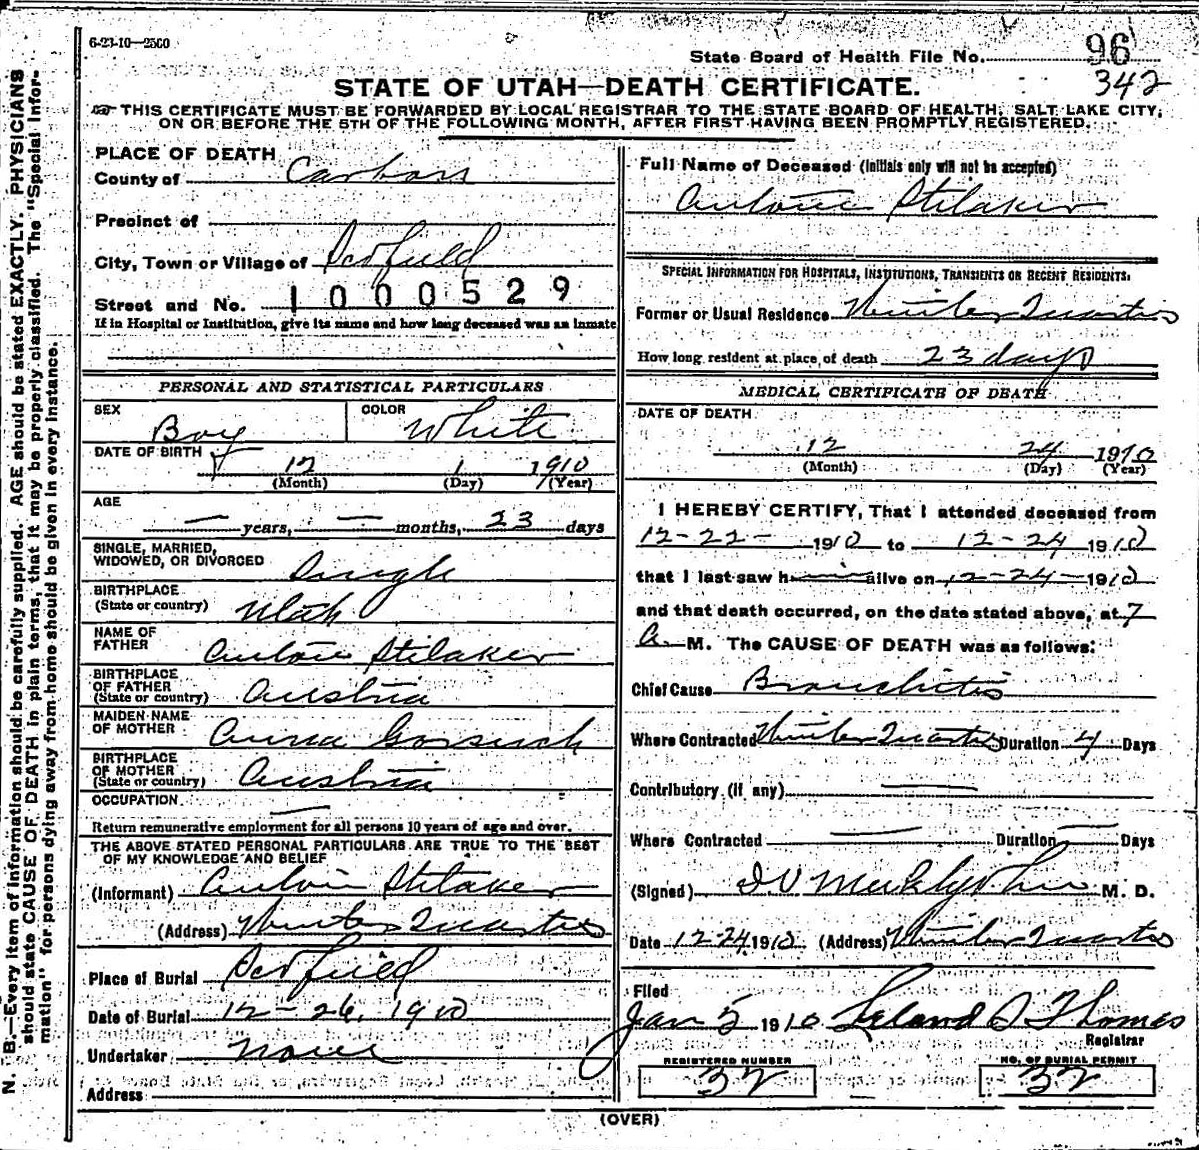 6-23-10—2500
State Board of Health File No. 96
342
STATE OF UTAH—DEATH CERTIFICATE.
THIS CERTIFICATE MUST BE FORWARDED BY LOCAL REGISTRAR TO THE STATE BOARD OF HEALTH, SALT LAKE CITY,
ON OR BEFORE THE 5TH OF THE FOLLOWING MONTH, AFTER FIRST HAVING BEEN PROMPTLY REGISTERED.
N. B.—Every item of information should be carefully supplied. AGE should be stated EXACTLY. PHYSICIANS
should state CAUSE OF DEATH in plain terms, that it may be properly classified. The "Special Infor-
mation" for persons dying away from home should be given in every instance.
PLACE OF DEATH
County of Carbon
Precinct of
City, Town or Village of Scofield
Street and No. 1000529
If in Hospital or Institution, give its name and how long deceased was an inmate
PERSONAL AND STATISTICAL PARTICULARS
SEX Boy
COLOR White
DATE OF BIRTH 12 1 1910
(Month) (Day) (Year)
AGE
— years, — months, 23 days
SINGLE, MARRIED,
WIDOWED, OR DIVORCED Single
BIRTHPLACE
(State or country) Utah
NAME OF
FATHER Antone Stilaker
BIRTHPLACE
OF FATHER
(State or country) Austria
MAIDEN NAME
OF MOTHER Anna Gorsuch
BIRTHPLACE
OF MOTHER
(State or country) Austria
OCCUPATION —
Return remunerative employment for all persons 10 years of age and over.
THE ABOVE STATED PERSONAL PARTICULARS ARE TRUE TO THE BEST
OF MY KNOWLEDGE AND BELIEF
(Informant) Antoin Stilaker
(Address) Winter Quarters
Place of Burial Scofield
Date of Burial 12-26, 1910
Undertaker None
Address
Full Name of Deceased (Initials only will not be accepted)
Antone Stilaker
SPECIAL INFORMATION FOR HOSPITALS, INSTITUTIONS, TRANSIENTS OR RECENT RESIDENTS.
Former or Usual Residence Winter Quarters
How long resident at place of death 23 days
MEDICAL CERTIFICATE OF DEATH
DATE OF DEATH
12 24 1910
(Month) (Day) (Year)
I HEREBY CERTIFY, That I attended deceased from
12-22- 1910 to 12-24 1910
that I last saw him alive on 12-24-1910
and that death occurred, on the date stated above, at 7
A. M. The CAUSE OF DEATH was as follows:
Chief Cause Bronchitis
Where Contracted Winter Quarters Duration 4 Days
Contributory (if any) —
Where Contracted — Duration — Days
(Signed) M. D.
Date 12-24 1910 (Address) Winter Quarters
Filed
Jan 5 1910 Leland S Thomas
Registrar
REGISTERED NUMBER
32
NO. OF BURIAL PERMIT
32
(OVER)